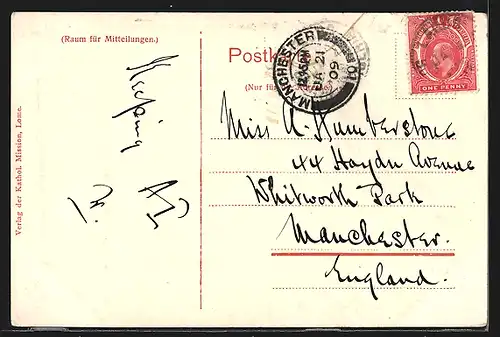 (Raum für Mitteilungen.)
Keeping
A1
Verlag der Kathol. Mission, Lome.
Postk
(Nur für
MANCHESTER
JA 21
09
ONE PENNY
Miss A. Humberstone
44 Haydn Avenue
Whitworth Park
Manchester.
England.